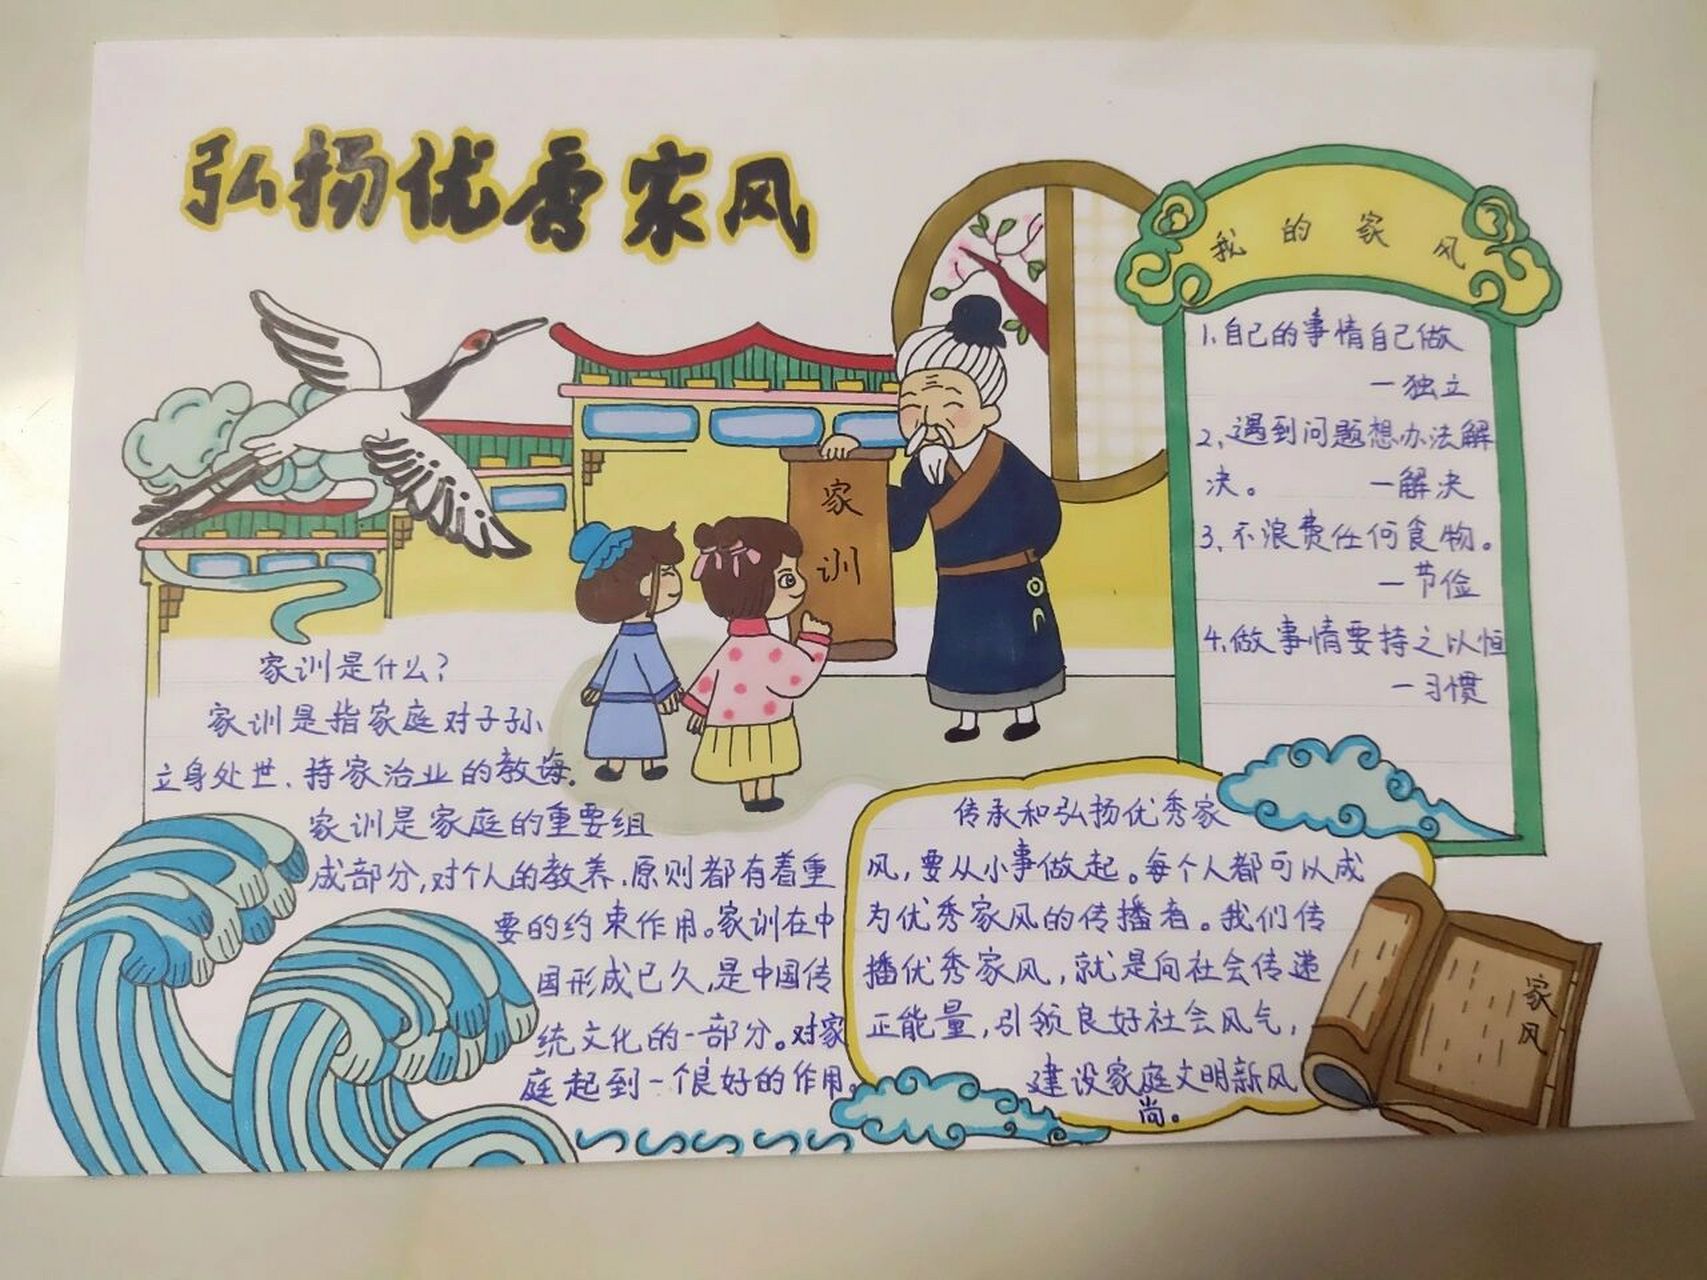 弘扬优秀家风
我的家风
1.自己的事情自己做
一独立
2.遇到问题想办法解
决。 一解决
3.不浪费任何食物。
一节俭
4.做事情要持之以恒
一习惯
家训
家训是什么?
家训是指家庭对子孙
立身处世、持家治业的教诲.
家训是家庭的重要组
成部分,对个人的教养、原则都有着重
要的约束作用。家训在中
国形成已久,是中国传
统文化的一部分。对家
庭起到一个良好的作用。
传承和弘扬优秀家
风,要从小事做起。每个人都可以成
为优秀家风的传播者。我们传
播优秀家风,就是向社会传递
正能量,引领良好社会风气,
建设家庭文明新风
尚。
家风